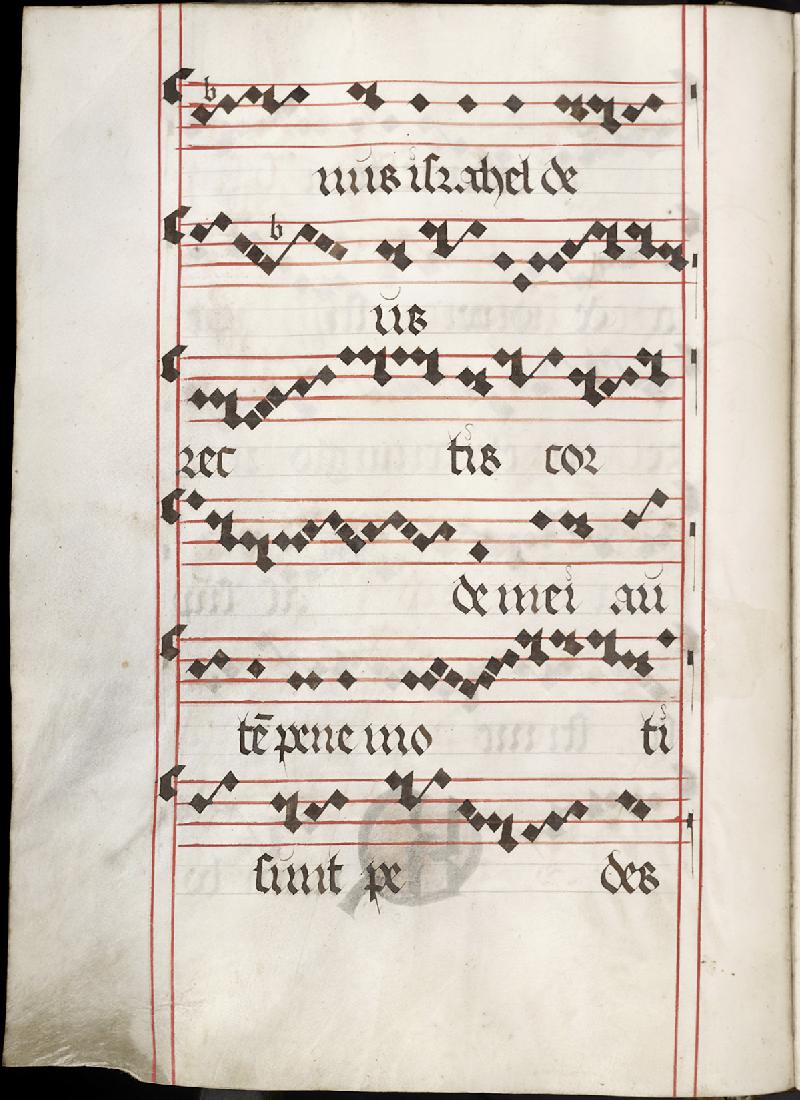 b
nus israhel de
b
us
rec tis cor
de mei au
tē pene mo ti
sunt pe des